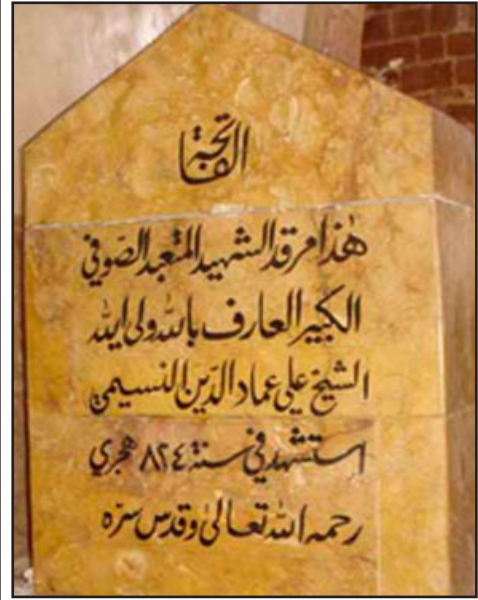 الفاتحة
هٰذا مرقد الشهيد المتعبد الصّوفي
الكبير العارف بالله ولي الله
الشيخ علي عماد الدّين النسيمي
استشهد في سنة ٨٢٤ هجري
رحمه الله تعالىٰ وقدس سرّه